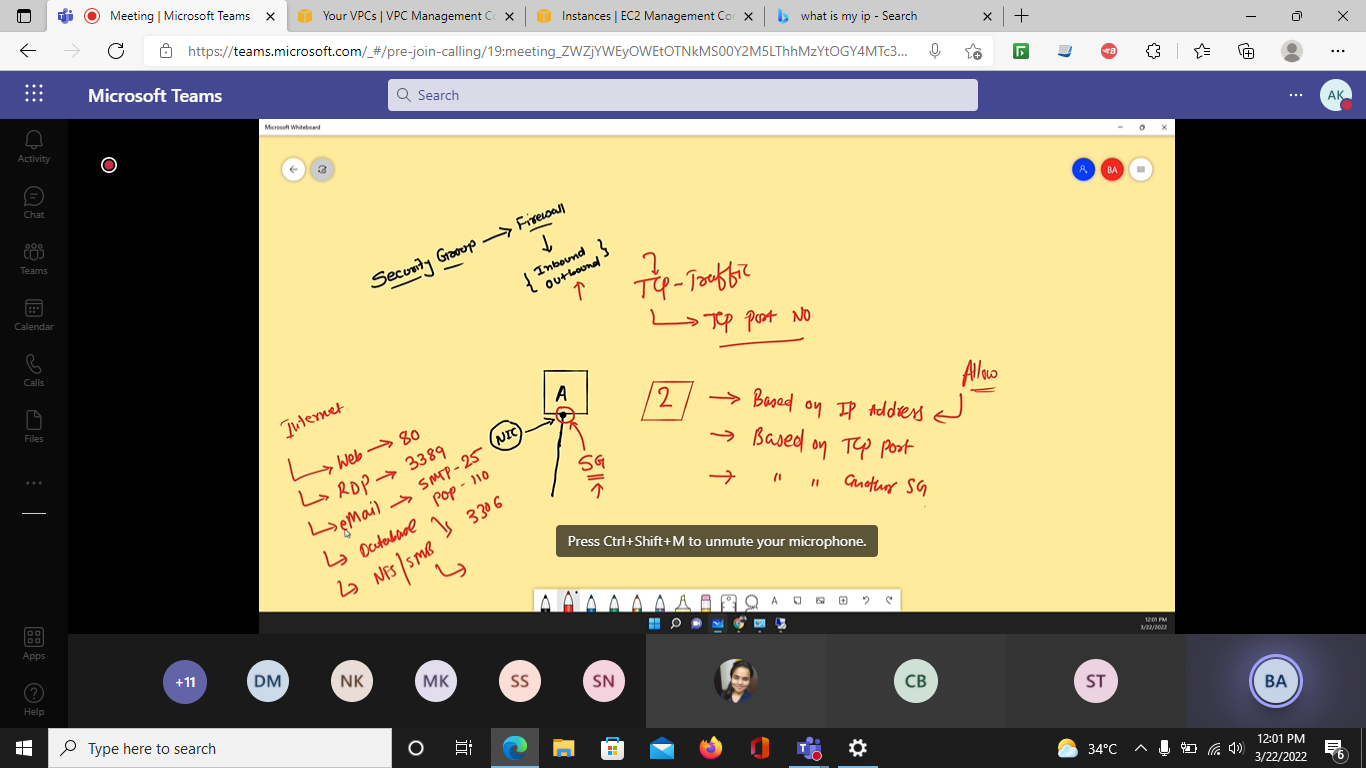 Meeting | Microsoft Teams
Your VPCs | VPC Management Co
Instances | EC2 Management Con
what is my ip - Search
https://teams.microsoft.com/_#/pre-join-calling/19:meeting_ZWZjYWEyOWEtOTNkMS00Y2M5LThhMzYtOGY4MTc3...
Microsoft Teams
Search
AK
Activity
Chat
Teams
Calendar
Calls
Files
Apps
Help
Microsoft Whiteboard
BA
Security Group
Firewall
{ Inbound }
Outbound
TCP - Traffic
TCP port NO
A
NIC
SG
2
Allow
Based on IP Address
Based on TCP port
" " another SG
Internet
Web → 80
RDP → 3389
eMail → SMTP - 25
POP - 110
Database 3306
NFS/SMB
Press Ctrl+Shift+M to unmute your microphone.
A
12:01 PM
3/22/2022
+11
DM
NK
MK
SS
SN
CB
ST
BA
Type here to search
34°C
12:01 PM
3/22/2022
6